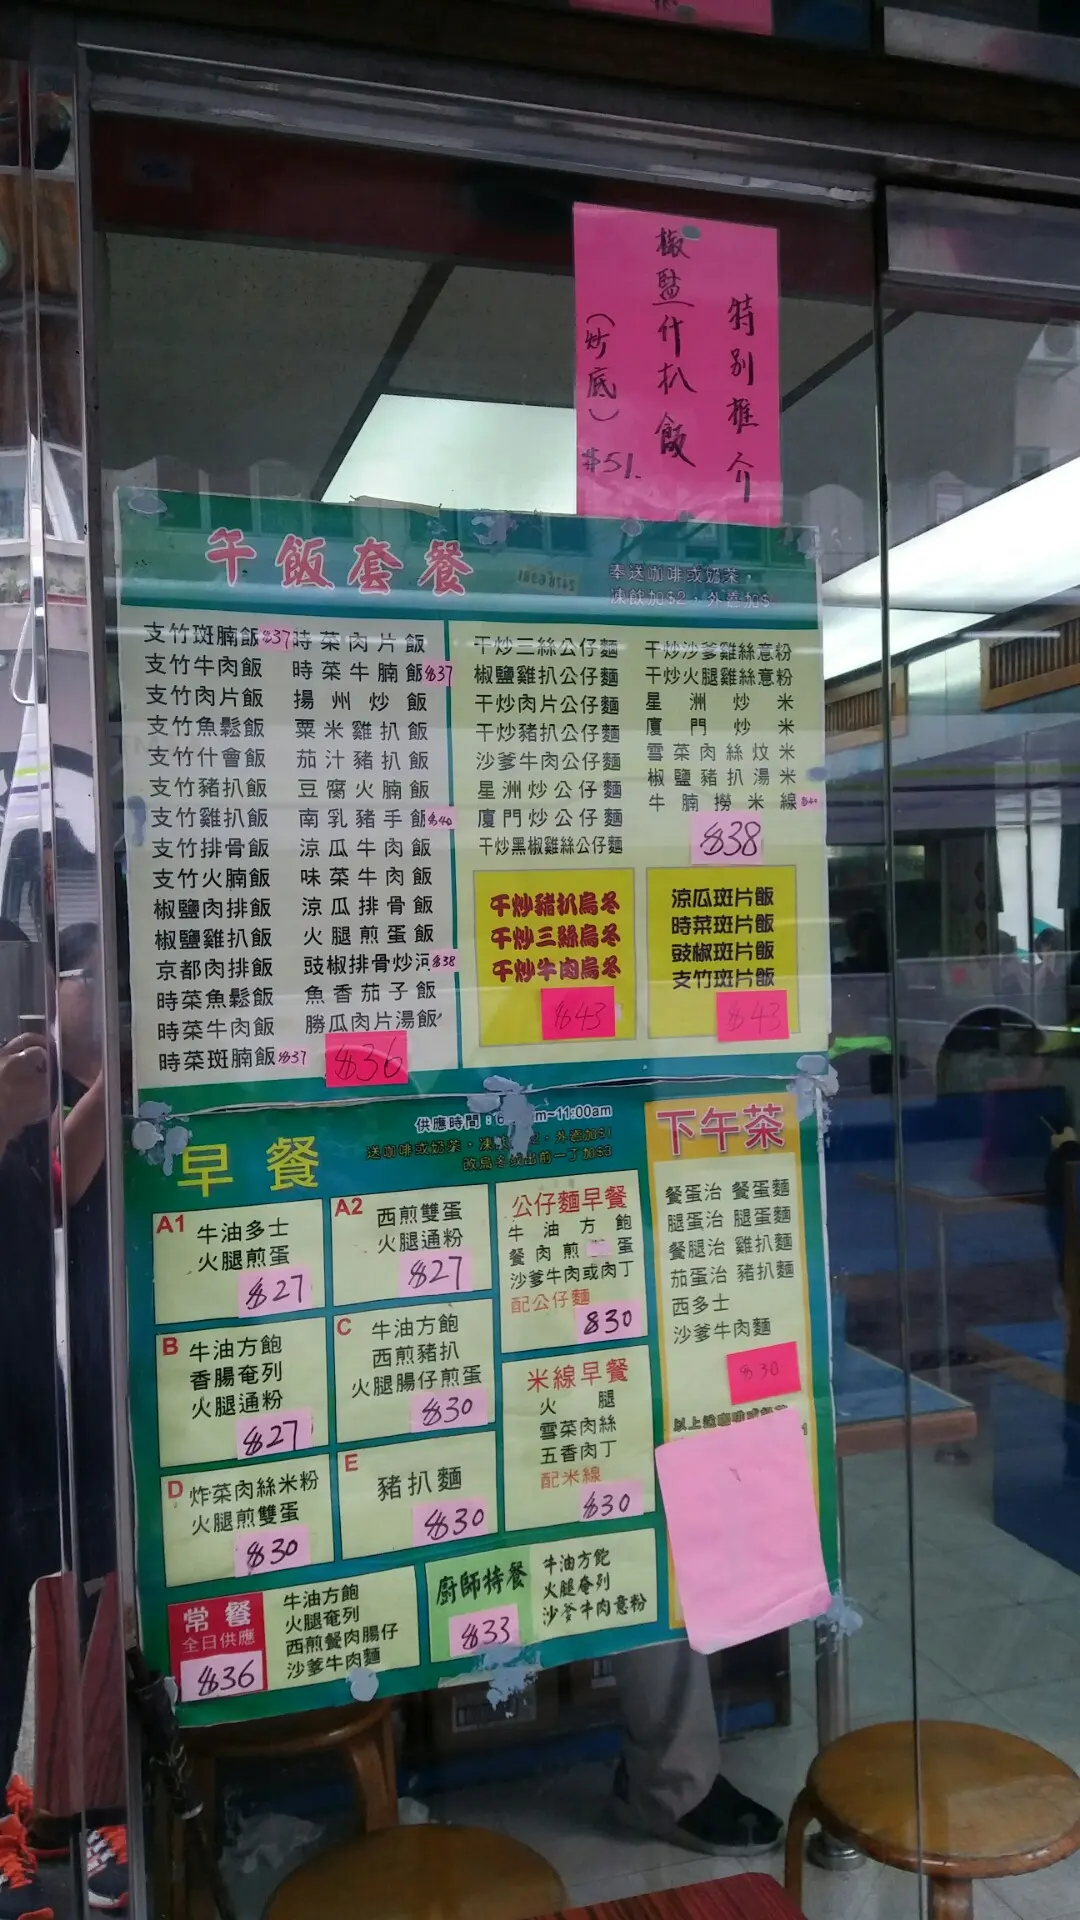 特別推介
椒鹽什扒飯
(炒底)
$51.
午飯套餐
奉送咖啡或奶茶，
凍飲加$2，外賣加$
支竹斑腩飯 $37
支竹牛肉飯
支竹肉片飯
支竹魚鬆飯
支竹什會飯
支竹豬扒飯
支竹雞扒飯
支竹排骨飯
支竹火腩飯
椒鹽肉排飯
椒鹽雞扒飯
京都肉排飯
時菜魚鬆飯
時菜牛肉飯
時菜斑腩飯 $37
時菜肉片飯
時菜牛腩飯 $37
揚州炒飯
粟米雞扒飯
茄汁豬扒飯
豆腐火腩飯
南乳豬手飯 $40
涼瓜牛肉飯
味菜牛肉飯
涼瓜排骨飯
火腿煎蛋飯
豉椒排骨炒河 $38
魚香茄子飯
勝瓜肉片湯飯
$36
干炒三絲公仔麵
椒鹽雞扒公仔麵
干炒肉片公仔麵
干炒豬扒公仔麵
沙爹牛肉公仔麵
星洲炒公仔麵
廈門炒公仔麵
干炒黑椒雞絲公仔麵
干炒沙爹雞絲意粉
干炒火腿雞絲意粉
星洲炒米
廈門炒米
雪菜肉絲炆米
椒鹽豬扒湯米
牛腩撈米線 $40
$38
干炒豬扒烏冬
干炒三絲烏冬
干炒牛肉烏冬
$43
涼瓜斑片飯
時菜斑片飯
豉椒斑片飯
支竹斑片飯
$43
早餐
供應時間：6 m~11:00am
送咖啡或奶茶，凍 2，外賣加$1
改烏冬或出前一丁加$3
A1
牛油多士
火腿煎蛋
$27
A2
西煎雙蛋
火腿通粉
$27
B
牛油方飽
香腸奄列
火腿通粉
$27
C
牛油方飽
西煎豬扒
火腿腸仔煎蛋
$30
D
炸菜肉絲米粉
火腿煎雙蛋
$30
E
豬扒麵
$30
公仔麵早餐
牛油方飽
餐肉煎蛋
沙爹牛肉或肉丁
配公仔麵
$30
米線早餐
火腿
雪菜肉絲
五香肉丁
配米線
$30
常餐
全日供應
$36
牛油方飽
火腿奄列
西煎餐肉腸仔
沙爹牛肉麵
廚師特餐
$33
牛油方飽
火腿奄列
沙爹牛肉意粉
下午茶
餐蛋治 餐蛋麵
腿蛋治 腿蛋麵
餐腿治 雞扒麵
茄蛋治 豬扒麵
西多士
沙爹牛肉麵
$30
以上送咖啡或奶茶